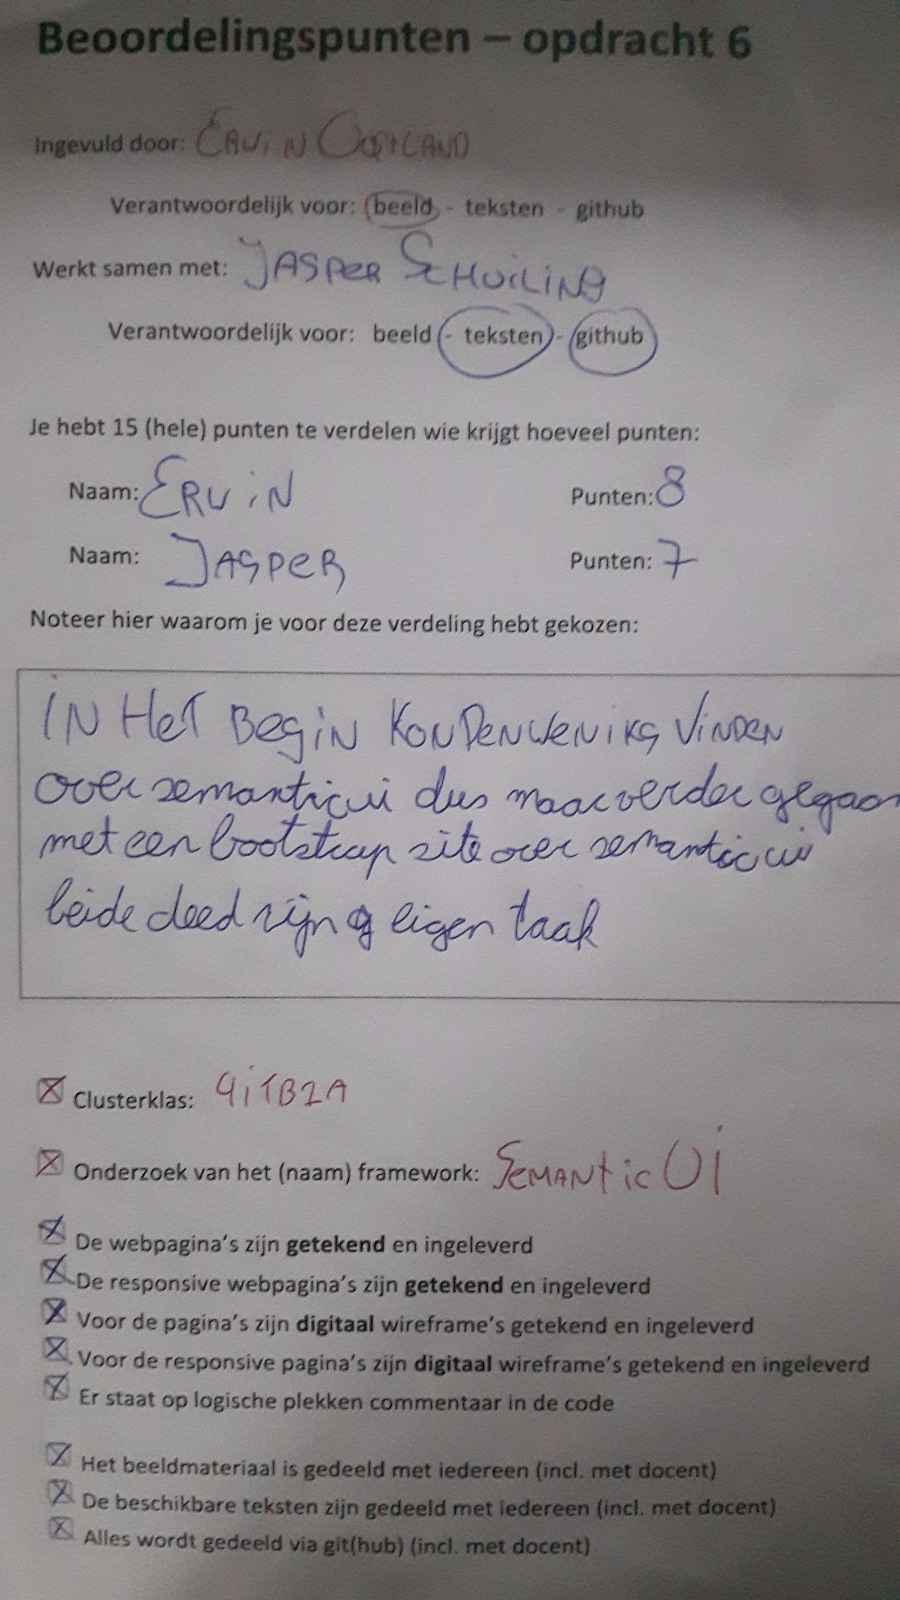 Beoordelingspunten – opdracht 6
Ingevuld door: ERWIN OOSTLAND
Verantwoordelijk voor: beeld - teksten - github
Werkt samen met: JASPER SCHUILING
Verantwoordelijk voor: beeld - teksten - github
Je hebt 15 (hele) punten te verdelen wie krijgt hoeveel punten:
Naam: ERWIN Punten: 8
Naam: JASPER Punten: 7
Noteer hier waarom je voor deze verdeling hebt gekozen:
IN HET BEGIN KONDEN WE NIKS VINDEN
over semantic ui dus maar verder gegaan
met een bootstrap site over semantic ui
beide deed zijn eigen taak
Clusterklas: 9ITB2A
Onderzoek van het (naam) framework: SEMANTIC UI
De webpagina's zijn getekend en ingeleverd
De responsive webpagina's zijn getekend en ingeleverd
Voor de pagina's zijn digitaal wireframe's getekend en ingeleverd
Voor de responsive pagina's zijn digitaal wireframe's getekend en ingeleverd
Er staat op logische plekken commentaar in de code
Het beeldmateriaal is gedeeld met iedereen (incl. met docent)
De beschikbare teksten zijn gedeeld met iedereen (incl. met docent)
Alles wordt gedeeld via git(hub) (incl. met docent)